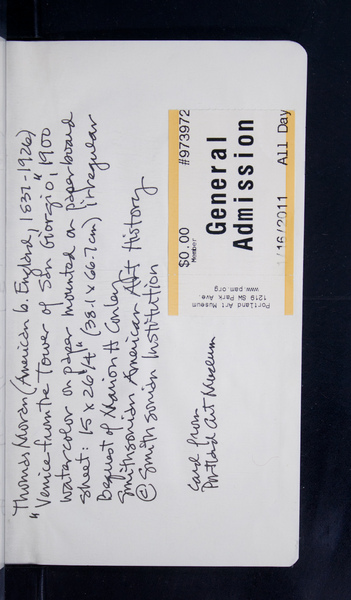 Thomas Moran (American b. England, 1837-1926)
"Venice from the Tower of San Giorgio," 1900
watercolor on paper mounted on paperboard
sheet: 15 x 26 1/4" (38.1 x 66.7 cm) irregular
Bequest of Marion H Conley
Smithsonian American Art History
@ Smithsonian Institution
$0.00 #973972
Member
General
Admission
1/16/2011 All Day
Portland Art Museum
1219 SW Park Ave.
www.pam.org
Card from
Portland Art Museum